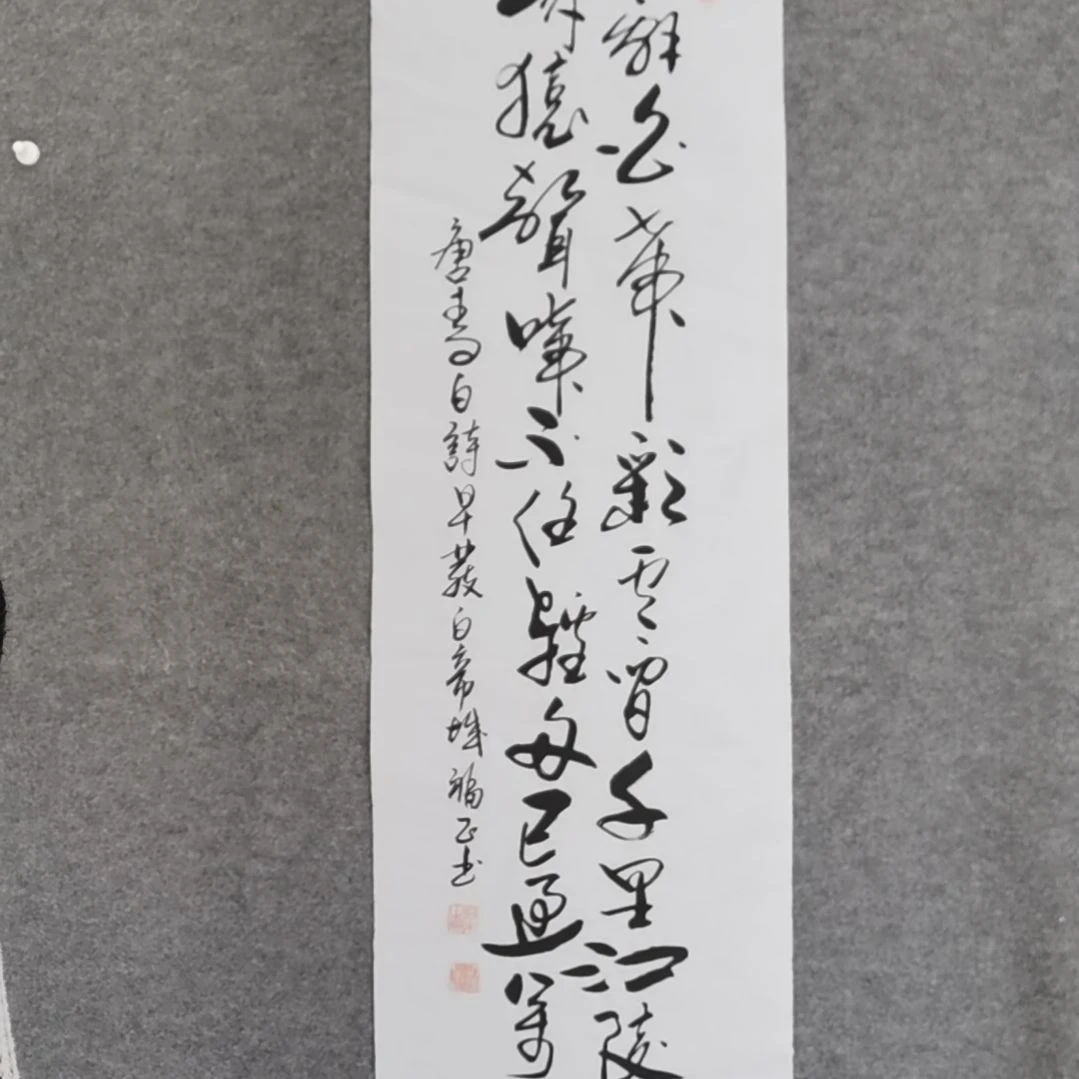 辭白帝彩雲間千里江陵
猿聲啼不住輕舟已過萬
唐李白詩早發白帝城福正書